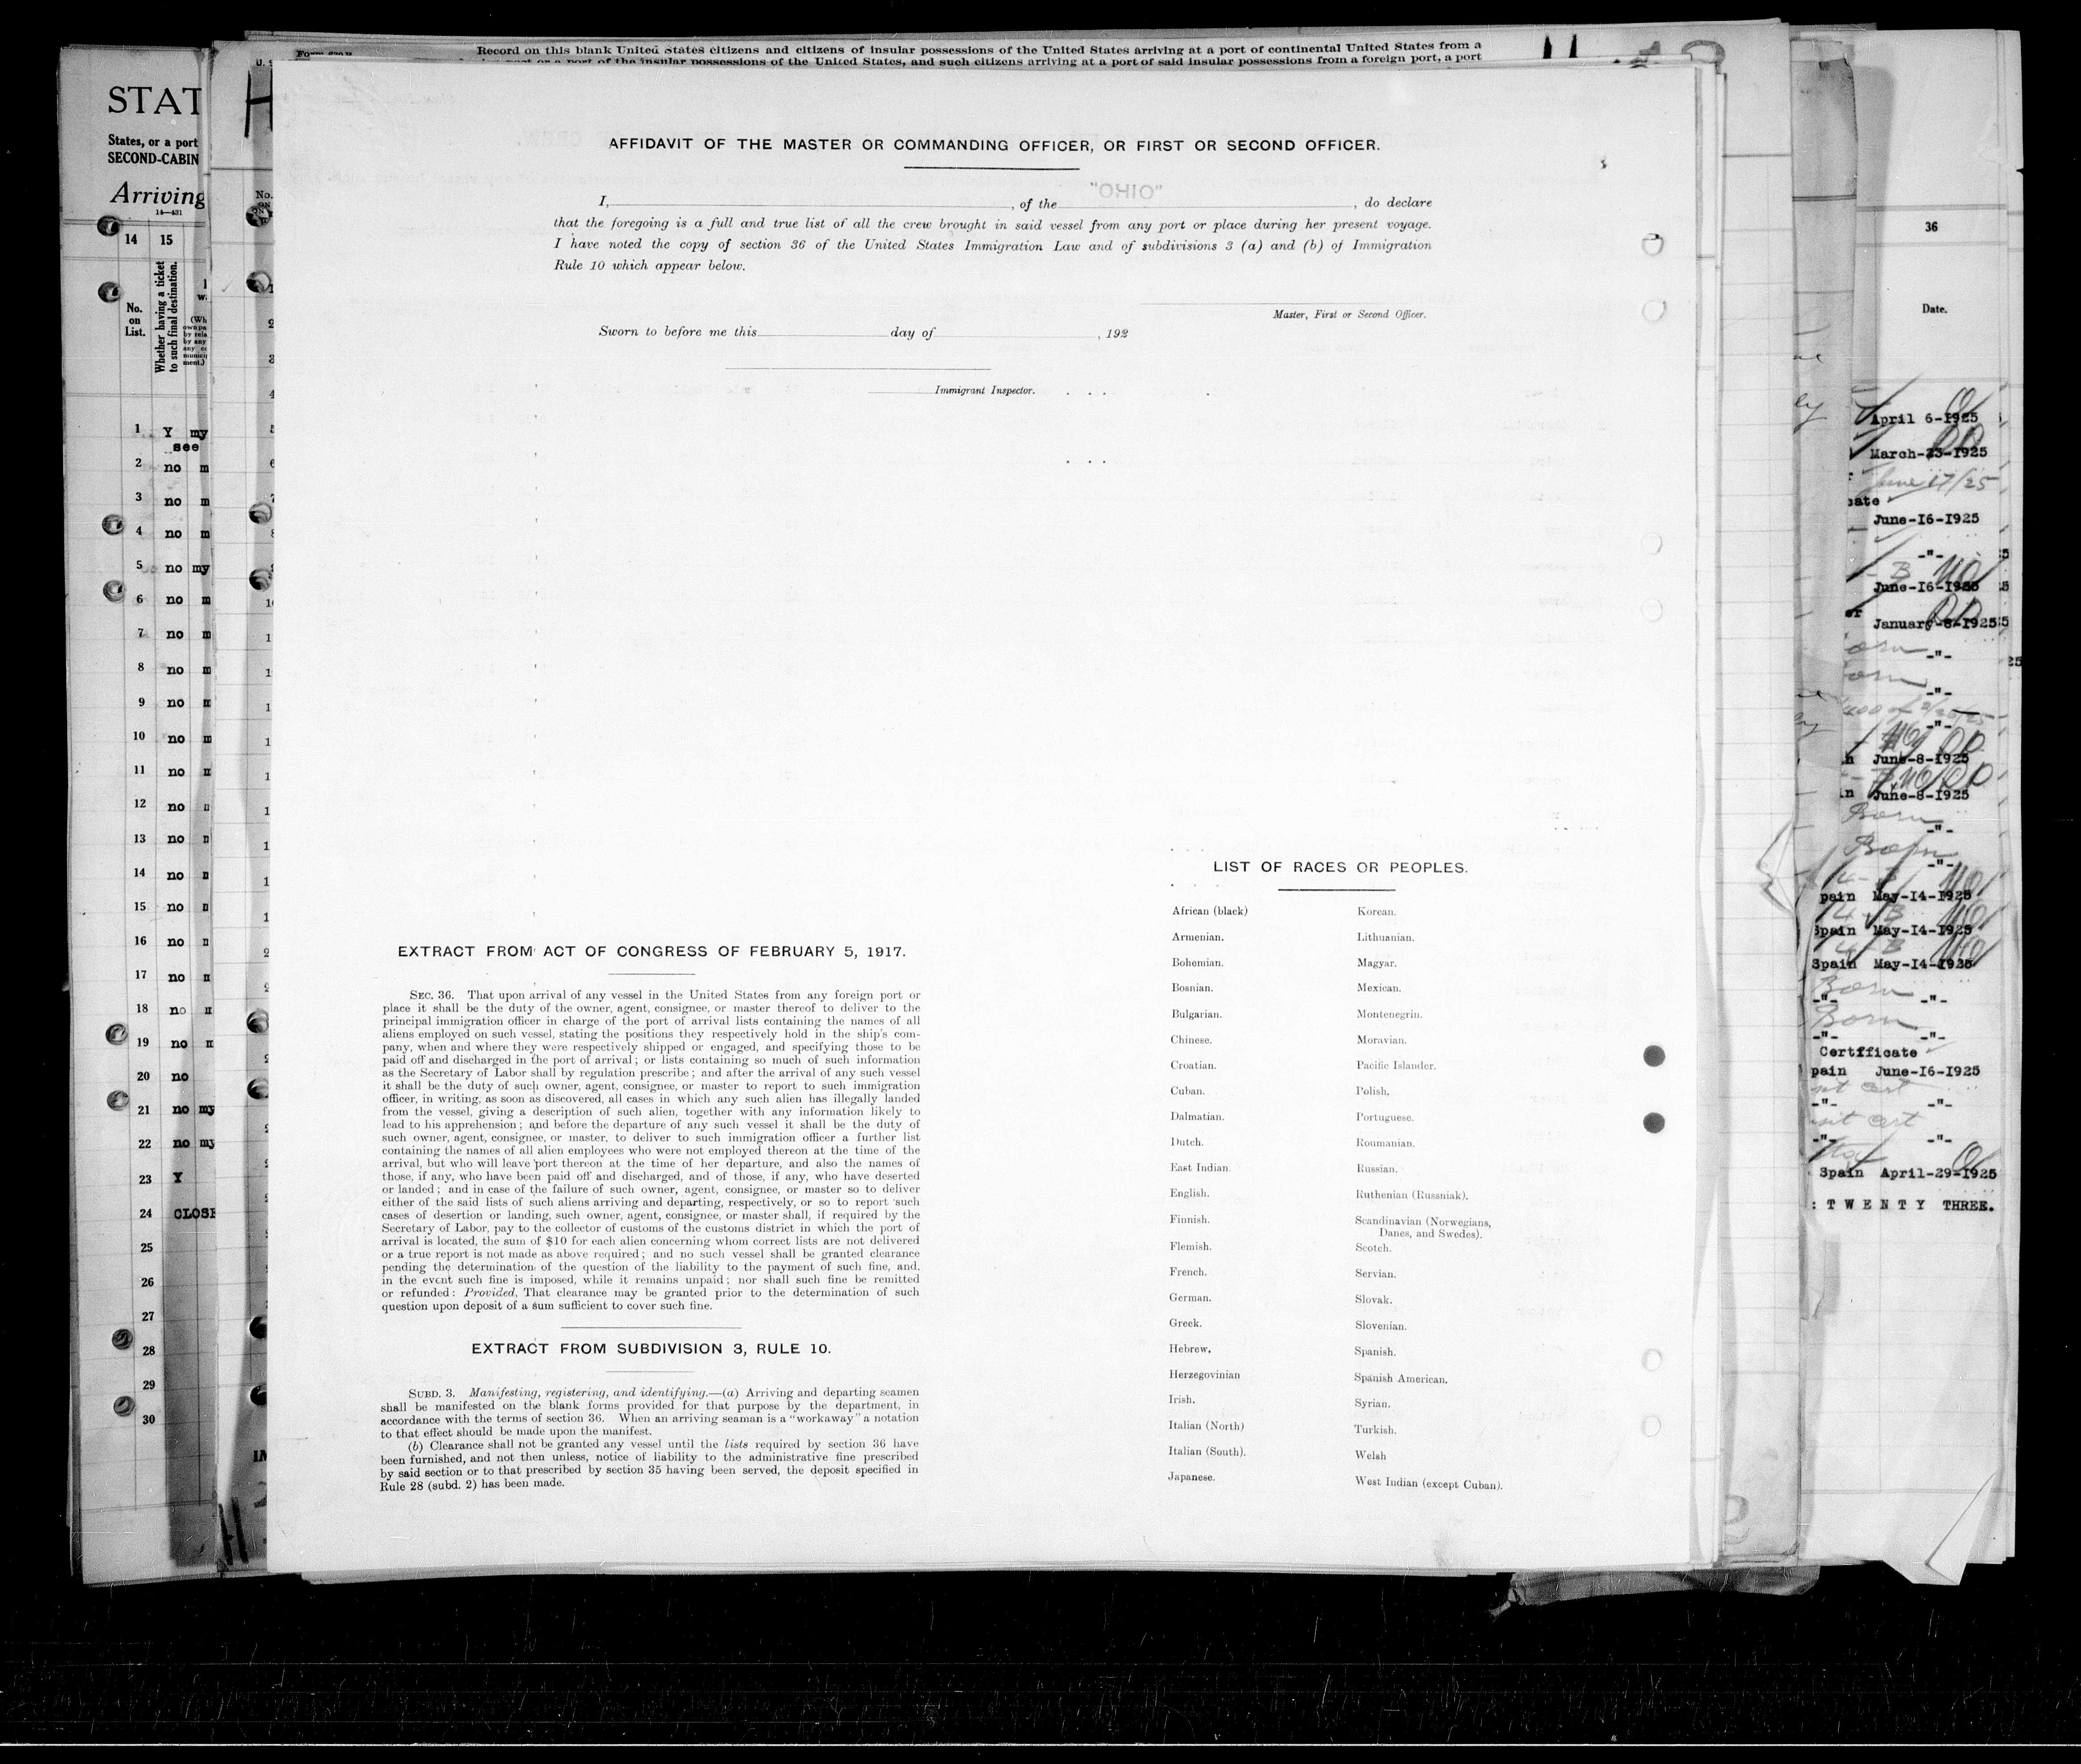 Record on this blank United States citizens and citizens of insular possessions of the United States arriving at a port of continental United States from a
of the insular possessions of the United States, and such citizens arriving at a port of said insular possessions from a foreign port, a port
STAT
States, or a port
SECOND-CABIN
Arriving
14—431
14 15
No. on List.
Whether having a ticket to such final destination.
1 Y my
see
2 no m
3 no m
4 no m
5 no my
6 no m
7 no m
8 no m
9 no m
10 no m
11 no m
12 no
13 no
14 no
15 no
16 no
17 no
18 no
19 no
20 no
21 no my
22 no my
23 Y
24 CLOSE
25
26
27
28
29
30
No.
AFFIDAVIT OF THE MASTER OR COMMANDING OFFICER, OR FIRST OR SECOND OFFICER.
"OHIO"
I, , of the , do declare
that the foregoing is a full and true list of all the crew brought in said vessel from any port or place during her present voyage.
I have noted the copy of section 36 of the United States Immigration Law and of subdivisions 3 (a) and (b) of Immigration
Rule 10 which appear below.
Master, First or Second Officer.
Sworn to before me this day of , 192
Immigrant Inspector.
EXTRACT FROM ACT OF CONGRESS OF FEBRUARY 5, 1917.
SEC. 36. That upon arrival of any vessel in the United States from any foreign port or
place it shall be the duty of the owner, agent, consignee, or master thereof to deliver to the
principal immigration officer in charge of the port of arrival lists containing the names of all
aliens employed on such vessel, stating the positions they respectively hold in the ship's com-
pany, when and where they were respectively shipped or engaged, and specifying those to be
paid off and discharged in the port of arrival; or lists containing so much of such information
as the Secretary of Labor shall by regulation prescribe; and after the arrival of any such vessel
it shall be the duty of such owner, agent, consignee, or master to report to such immigration
officer, in writing, as soon as discovered, all cases in which any such alien has illegally landed
from the vessel, giving a description of such alien, together with any information likely to
lead to his apprehension; and before the departure of any such vessel it shall be the duty of
such owner, agent, consignee, or master, to deliver to such immigration officer a further list
containing the names of all alien employees who were not employed thereon at the time of the
arrival, but who will leave port thereon at the time of her departure, and also the names of
those, if any, who have been paid off and discharged, and of those, if any, who have deserted
or landed; and in case of the failure of such owner, agent, consignee, or master so to deliver
either of the said lists of such aliens arriving and departing, respectively, or so to report such
cases of desertion or landing, such owner, agent, consignee, or master shall, if required by the
Secretary of Labor, pay to the collector of customs of the customs district in which the port of
arrival is located, the sum of $10 for each alien concerning whom correct lists are not delivered
or a true report is not made as above required; and no such vessel shall be granted clearance
pending the determination of the question of the liability to the payment of such fine, and,
in the event such fine is imposed, while it remains unpaid; nor shall such fine be remitted
or refunded: Provided, That clearance may be granted prior to the determination of such
question upon deposit of a sum sufficient to cover such fine.
EXTRACT FROM SUBDIVISION 3, RULE 10.
SUBD. 3. Manifesting, registering, and identifying.—(a) Arriving and departing seamen
shall be manifested on the blank forms provided for that purpose by the department, in
accordance with the terms of section 36. When an arriving seaman is a "workaway" a notation
to that effect should be made upon the manifest.
(b) Clearance shall not be granted any vessel until the lists required by section 36 have
been furnished, and not then unless, notice of liability to the administrative fine prescribed
by said section or to that prescribed by section 35 having been served, the deposit specified in
Rule 28 (subd. 2) has been made.
LIST OF RACES OR PEOPLES.
African (black)
Armenian.
Bohemian.
Bosnian.
Bulgarian.
Chinese.
Croatian.
Cuban.
Dalmatian.
Dutch.
East Indian.
English.
Finnish.
Flemish.
French.
German.
Greek.
Hebrew.
Herzegovinian
Irish.
Italian (North)
Italian (South).
Japanese.
Korean.
Lithuanian.
Magyar.
Mexican.
Montenegrin.
Moravian.
Pacific Islander.
Polish.
Portuguese.
Roumanian.
Russian.
Ruthenian (Russniak).
Scandinavian (Norwegians,
Danes, and Swedes).
Scotch.
Servian.
Slovak.
Slovenian.
Spanish.
Spanish American.
Syrian.
Turkish.
Welsh
West Indian (except Cuban).
36
Date.
April 6-1925
March-23-1925
June 17/25
June-16-1925
-"-
June-16-1925
January-8-1925
-"-
-"-
-"-
June-8-1925
June-8-1925
Born
-"-
Born
-"-
pain May-14-1925
Spain May-14-1925
Spain May-14-1925
Born
-"- -"-
Born
-"- -"-
Certificate
pain June-16-1925
-"- -"-
-"- -"-
Spain April-29-1925
: TWENTY THREE.